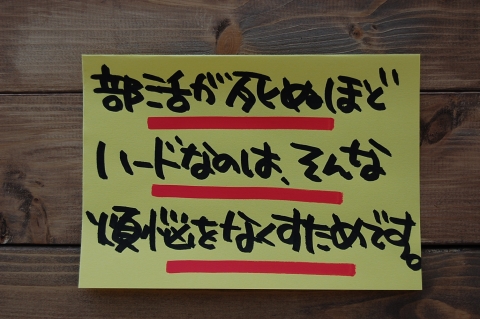 部活が死ぬほど
ハードなのは、そんな
煩悩をなくすためです。